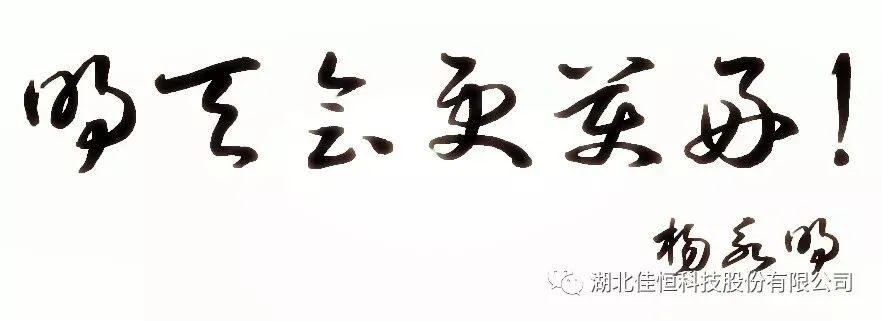 明天会更美好!
杨永明
湖北佳恒科技股份有限公司